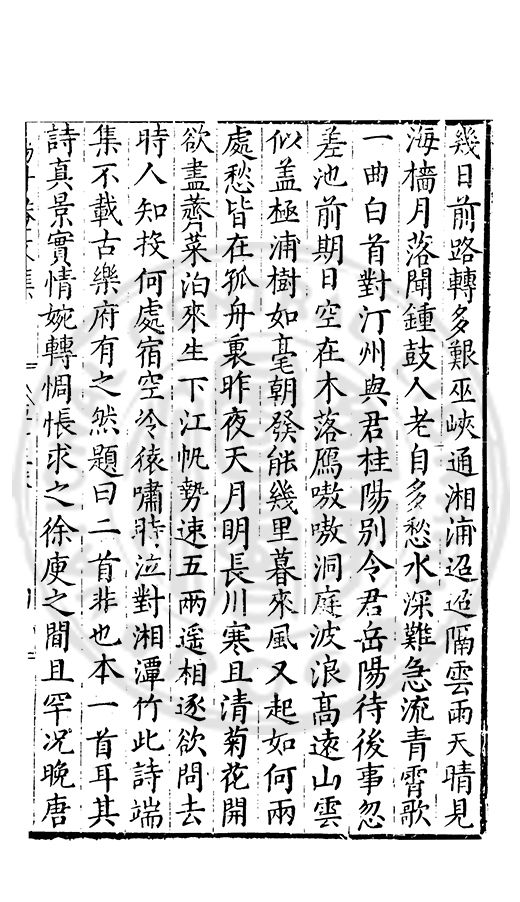 幾日前路轉多艱巫峽通湘浦迢迢隔雲雨天晴見
海檣月落聞鍾鼓人老自多愁水深難急流青霄歌
一曲白首對汀州與君桂陽別令君岳陽待後事忽
差池前期日空在木落鴈嗷嗷洞庭波浪高遠山雲
似盖極浦樹如毫朝發能幾里暮來風又起如何兩
處愁皆在孤舟裏昨夜天月明長川寒且清菊花開
欲盡薺菜泊來生下江帆勢速五兩遥相逐欲問去
時人知投何處宿空泠猿嘯時泣對湘潭竹此詩端
集不載古樂府有之然題曰二首非也本一首耳其
詩真景實情婉轉惆悵求之徐庾之間且罕况晚唐